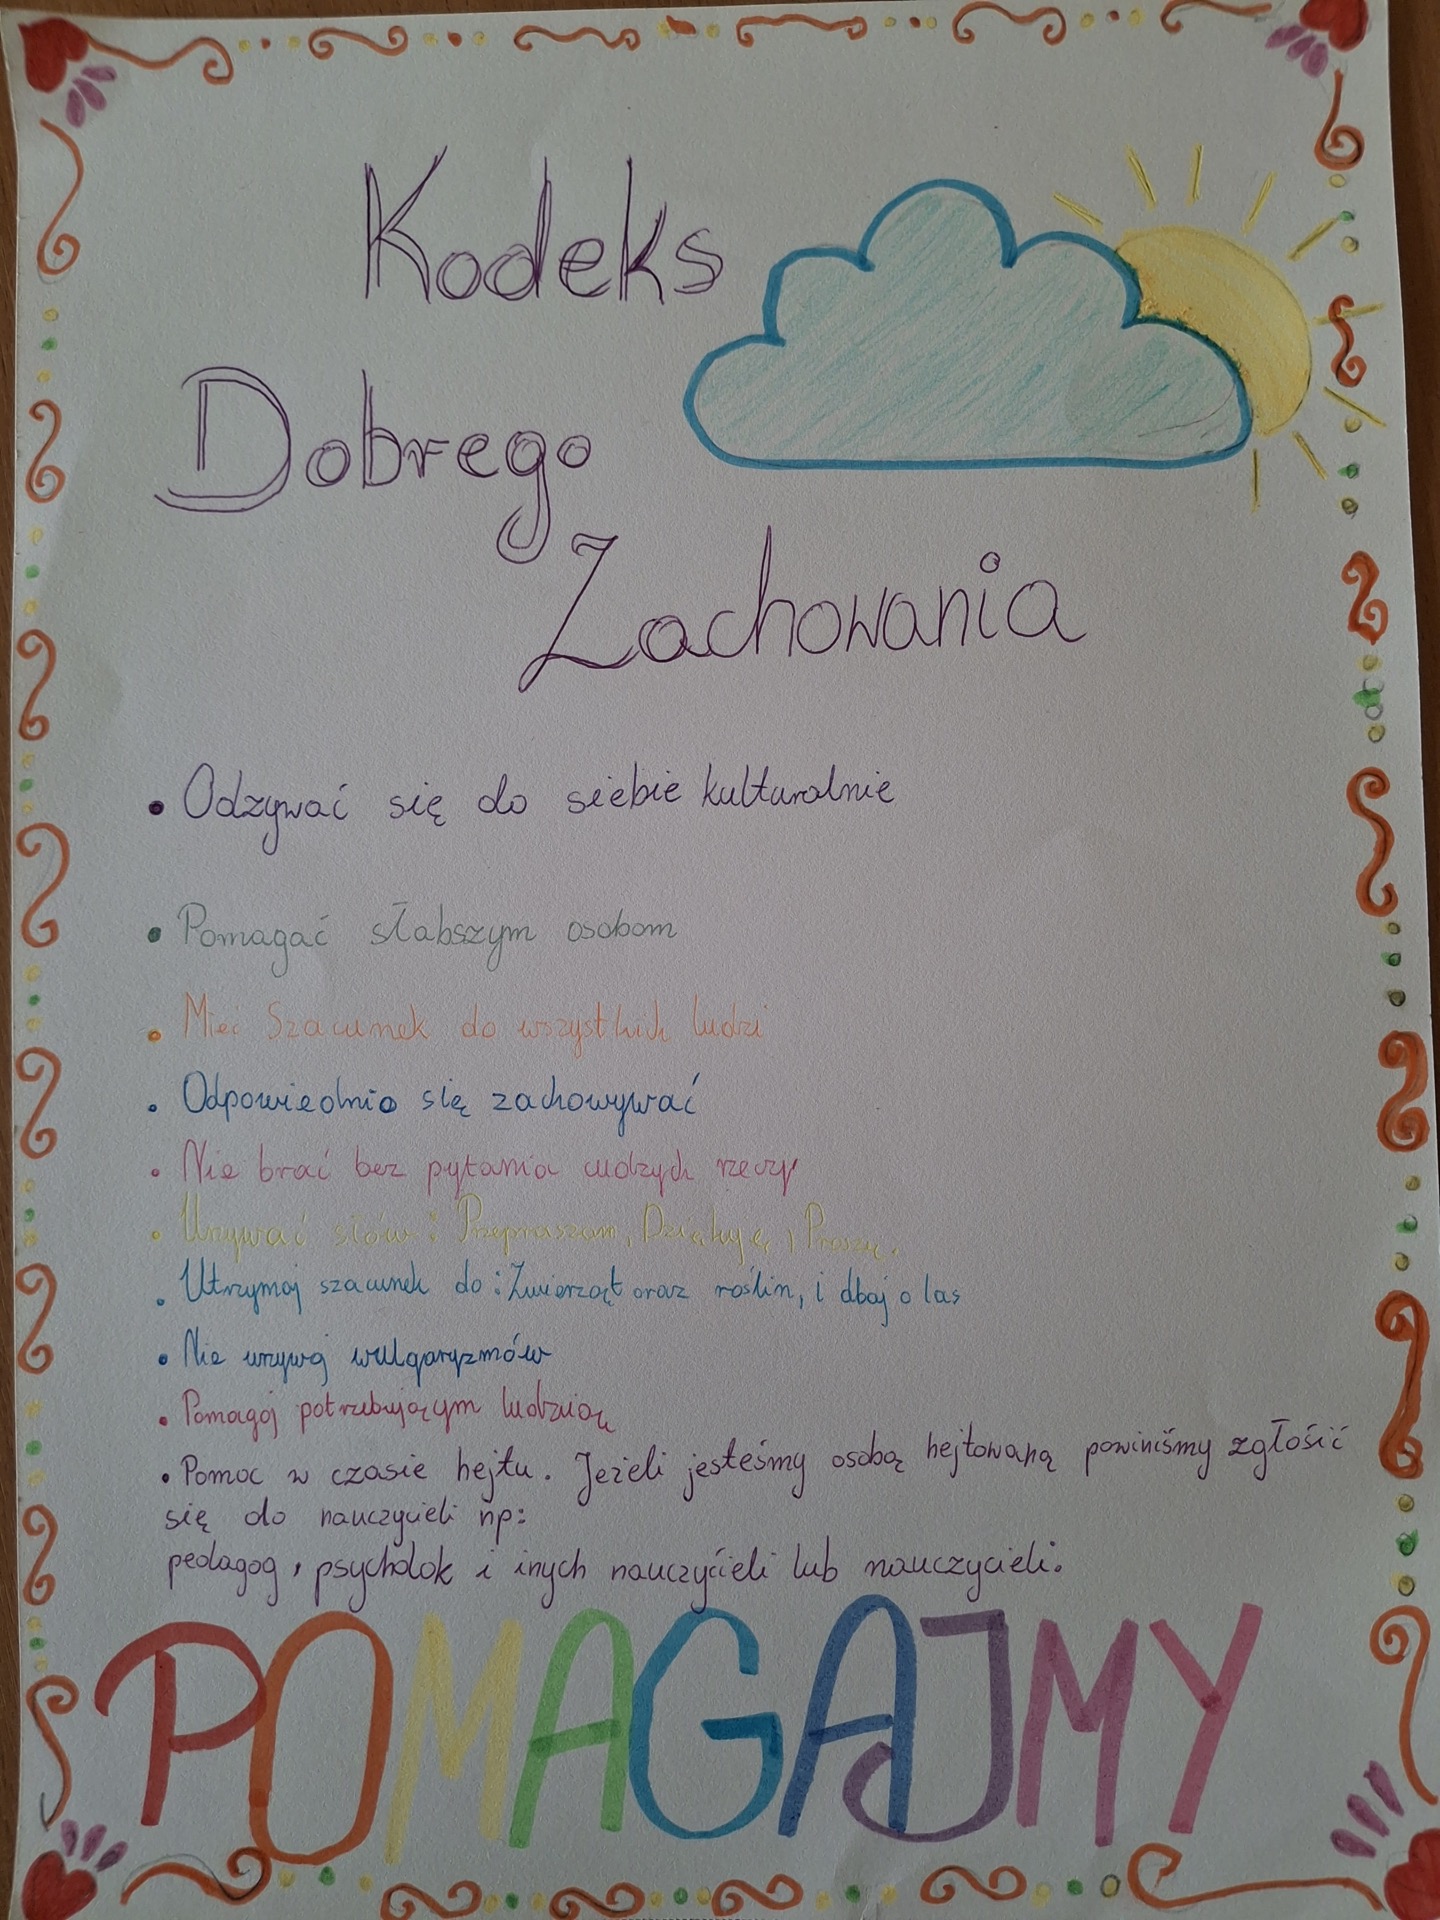 Kodeks
Dobrego
Zachowania
• Odzywać się do siebie kulturalnie
• Pomagać słabszym osobom
• Mieć Szacunek do wszystkich ludzi
• Odpowiednio się zachowywać
• Nie brać bez pytania cudzych rzeczy
• Urzywać słów: Przepraszam, Dziękuję, Proszę.
• Utrzymaj szacunek do: Zwierząt oraz roślin, i dbaj o las
• Nie urzywaj wulgaryzmów
• Pomagaj potrzebującym
• Pomoc w czasie hejtu. Jeżeli jesteśmy osobą hejtowaną powiniśmy zgłosić
się do nauczycieli np:
pedagog, psycholok i inych nauczycieli lub nauczycieli.
POMAGAJMY